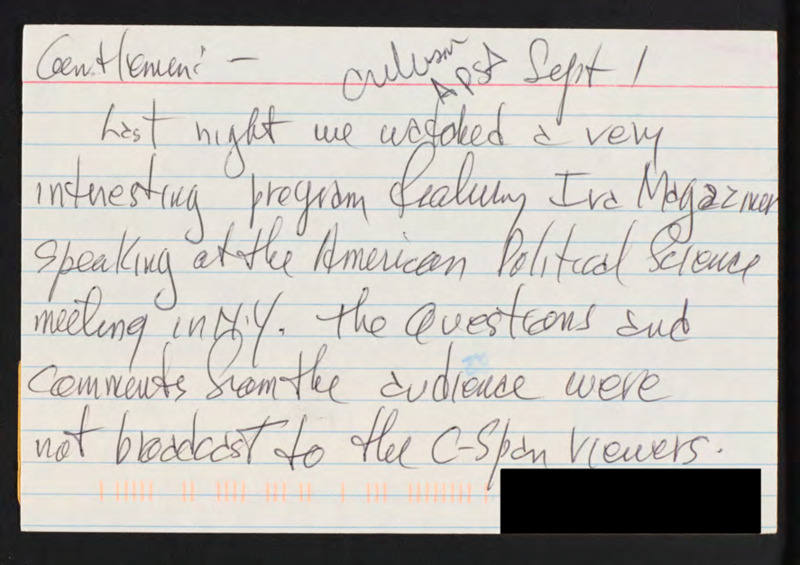 Gentlemen: - Sept 1
APSA
Last night we watched a very
interesting program featuring Ira Magaziner
speaking at the American Political Science
meeting in N.Y. The Questions and
Comments from the audience were
not broadcast to the C-Span viewers.